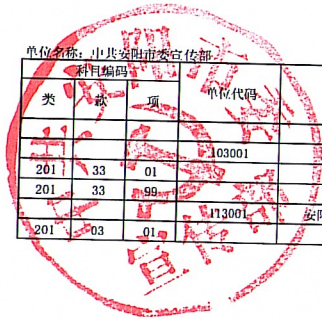 单位名称：中共安阳市委宣传部
科目编码 单位代码
类 款 项
103001
201 33 01
201 33 99
113001 安阳
201 03 01